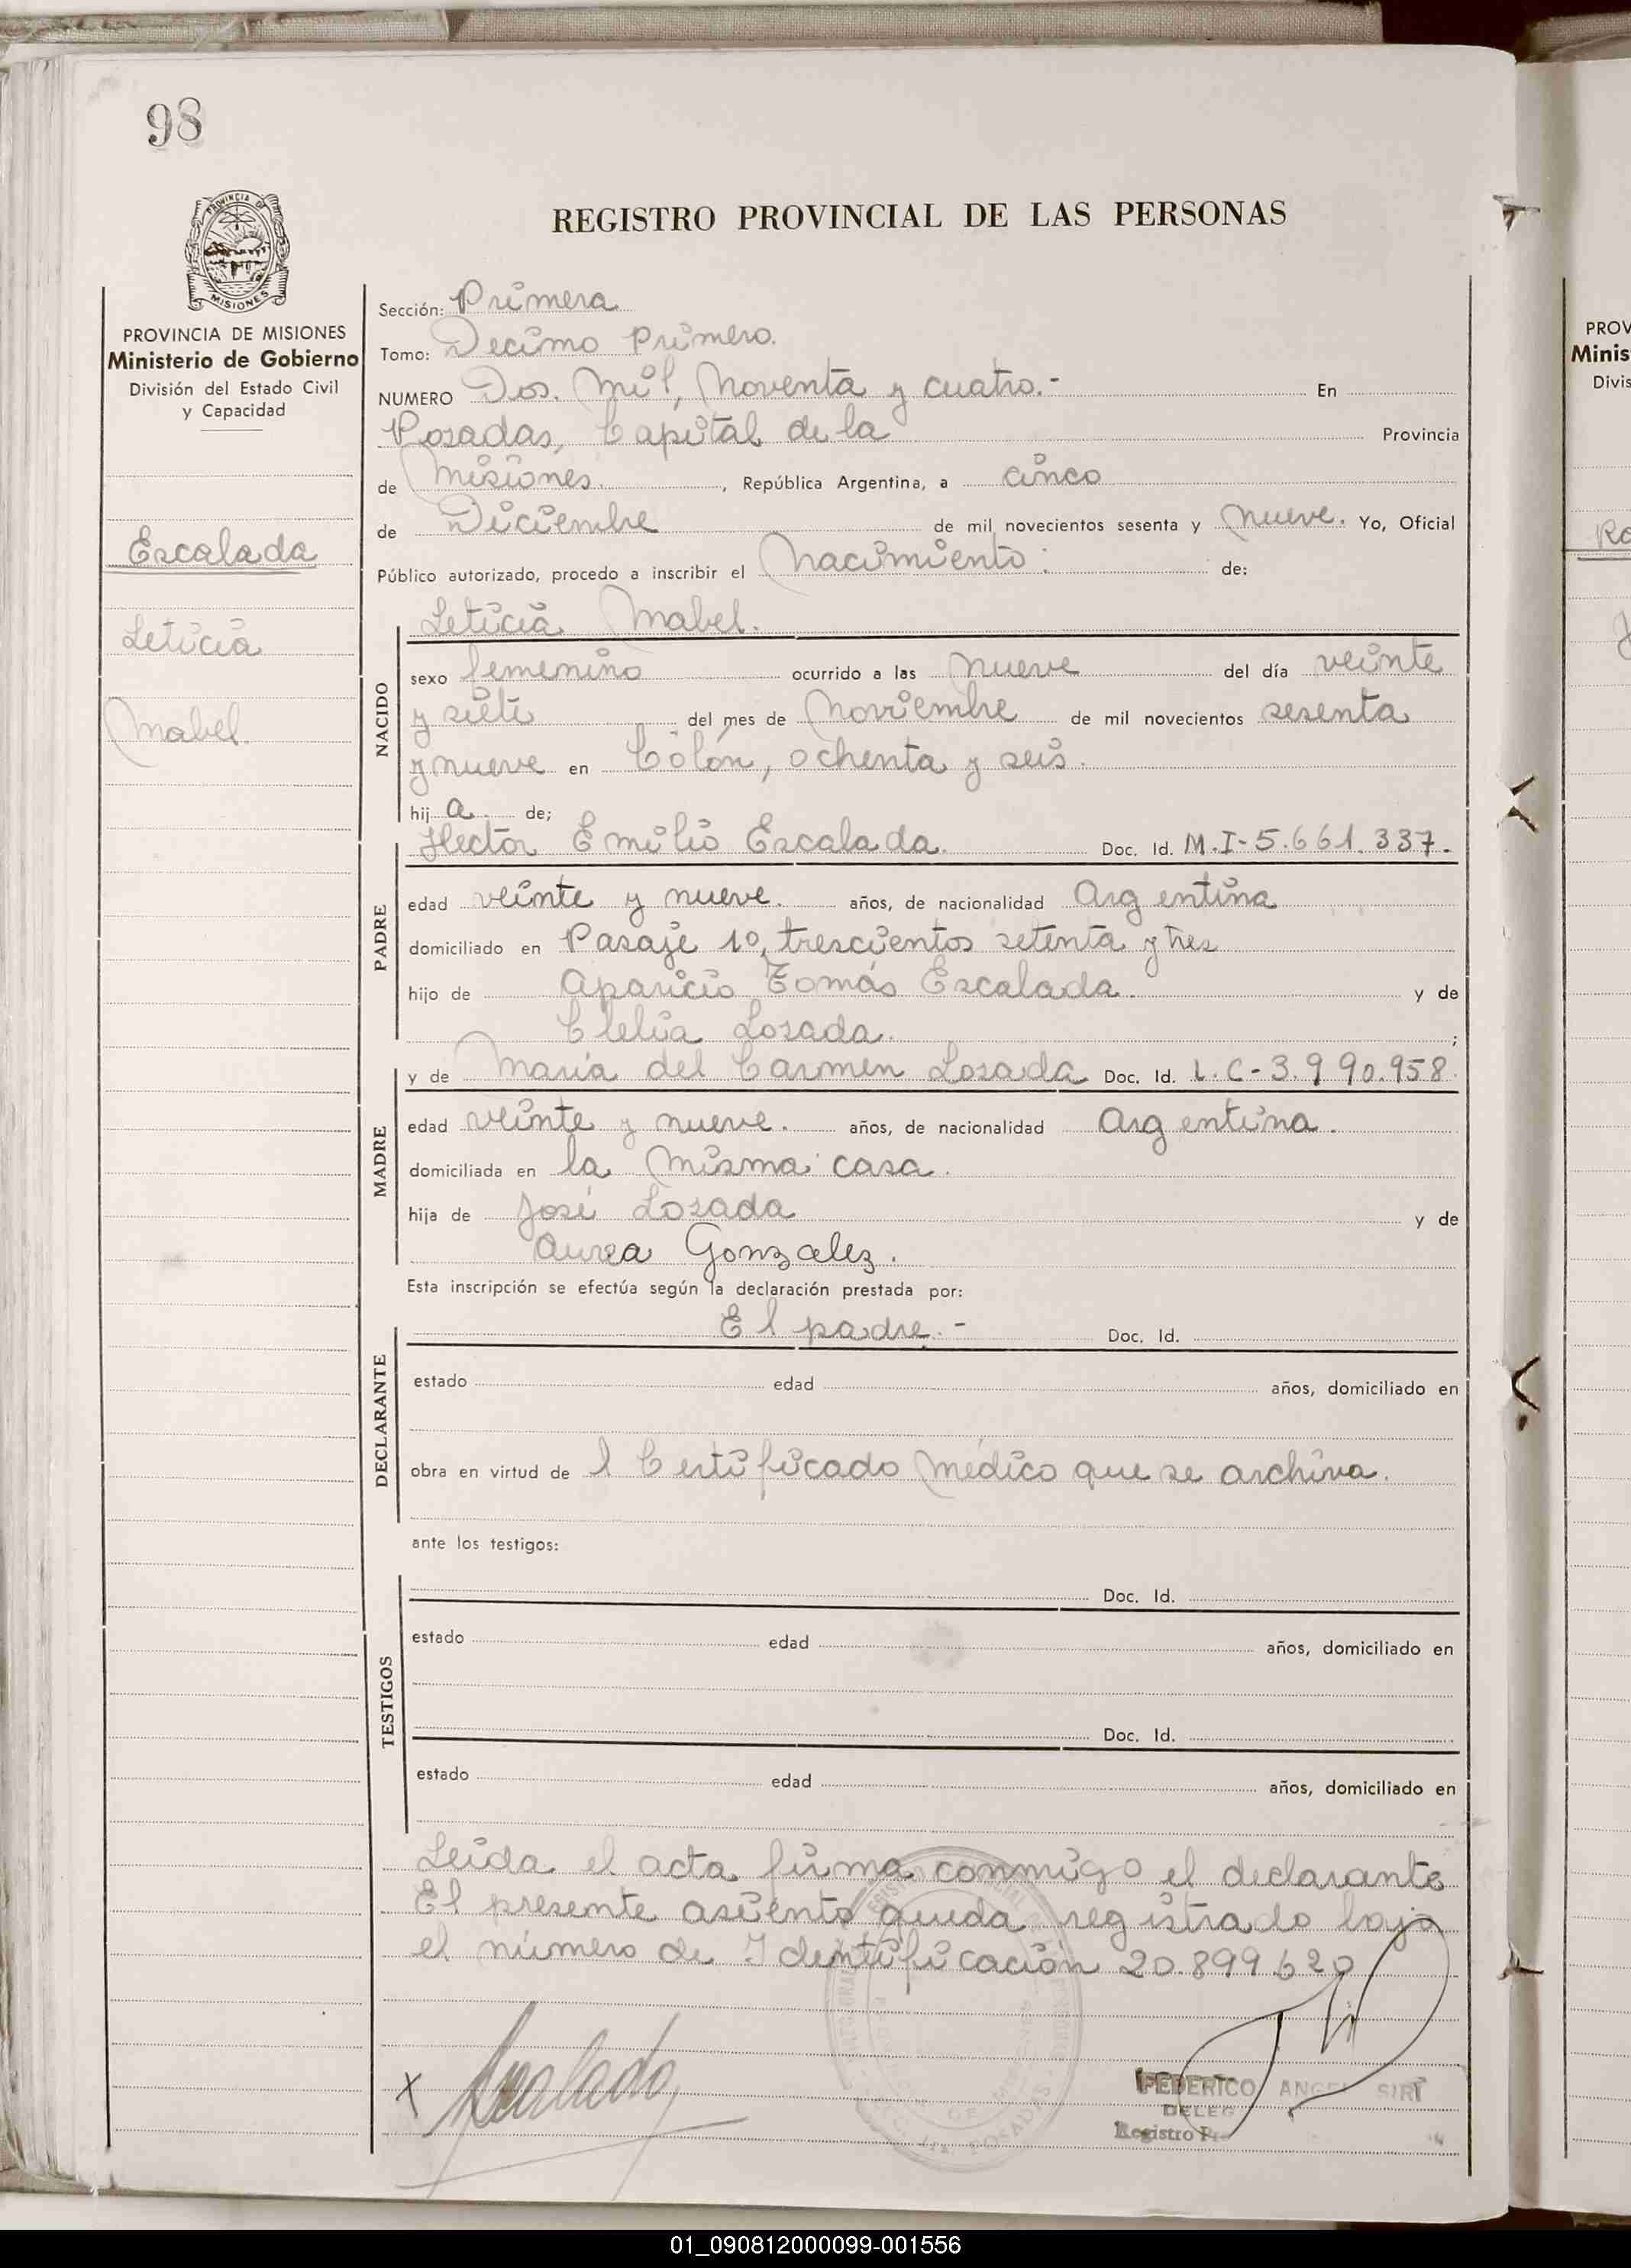 98
PROVINCIA DE
MISIONES
REGISTRO PROVINCIAL DE LAS PERSONAS
PROVINCIA DE MISIONES
Ministerio de Gobierno
División del Estado Civil
y Capacidad
Escalada
Leticia
Mabel.
Sección: Primera
Tomo: Decimo Primero.
NUMERO Dos. Mil, Noventa y cuatro.- En
Posadas, Capital de la Provincia
de Misiones. , República Argentina, a cinco
de Diciembre de mil novecientos sesenta y Nueve. Yo, Oficial
Público autorizado, procedo a inscribir el Nacimiento: de:
Leticia Mabel.
NACIDO
sexo femenino ocurrido a las Nueve del día veinte
y siete del mes de Noviembre de mil novecientos sesenta
y nueve en Colón, ochenta y seis.
hij a de;
Hector Emilio Escalada. Doc. Id. M.I-5.661.337.
PADRE
edad veinte y nueve. años, de nacionalidad Argentina
domiciliado en Pasaje 10, trescientos setenta y tres
hijo de Aparicio Tomás Escalada. y de
Clelia Losada. ;
y de María del Carmen Losada Doc. Id. L.C-3.990.958.
MADRE
edad veinte y nueve. años, de nacionalidad Argentina.
domiciliada en la Misma casa.
hija de José Losada y de
Aurea Gonzalez.
Esta inscripción se efectúa según la declaración prestada por:
El padre.- Doc. Id.
DECLARANTE
estado edad años, domiciliado en
obra en virtud de l Certificado Médico que se archiva.
ante los testigos:
Doc. Id.
TESTIGOS
estado edad años, domiciliado en
Doc. Id.
estado edad años, domiciliado en
Leida el acta firma conmigo el declarante
El presente asiento queda registrado bajo
el número de Identificación 20.899.620
x Escalada
FEDERICO ANGEL SIRI
DELEG
Registro
PROV
Minis
Divis
01_090812000099-001556